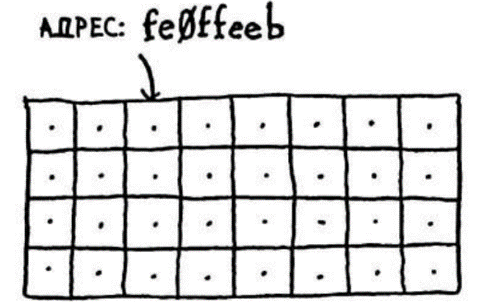 АДРЕС: fe0ffeeb